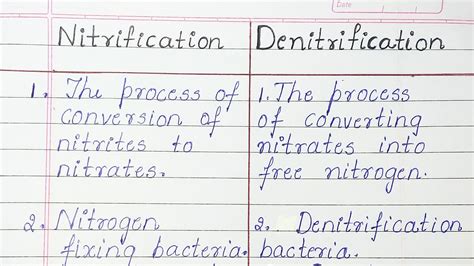 Date
Nitrification Denitrification
1. The process of
conversion of
nitrites to
nitrates.
1. The process
of converting
nitrates into
free nitrogen.
2. Nitrogen
fixing bacteria.
2. Denitrification
bacteria.